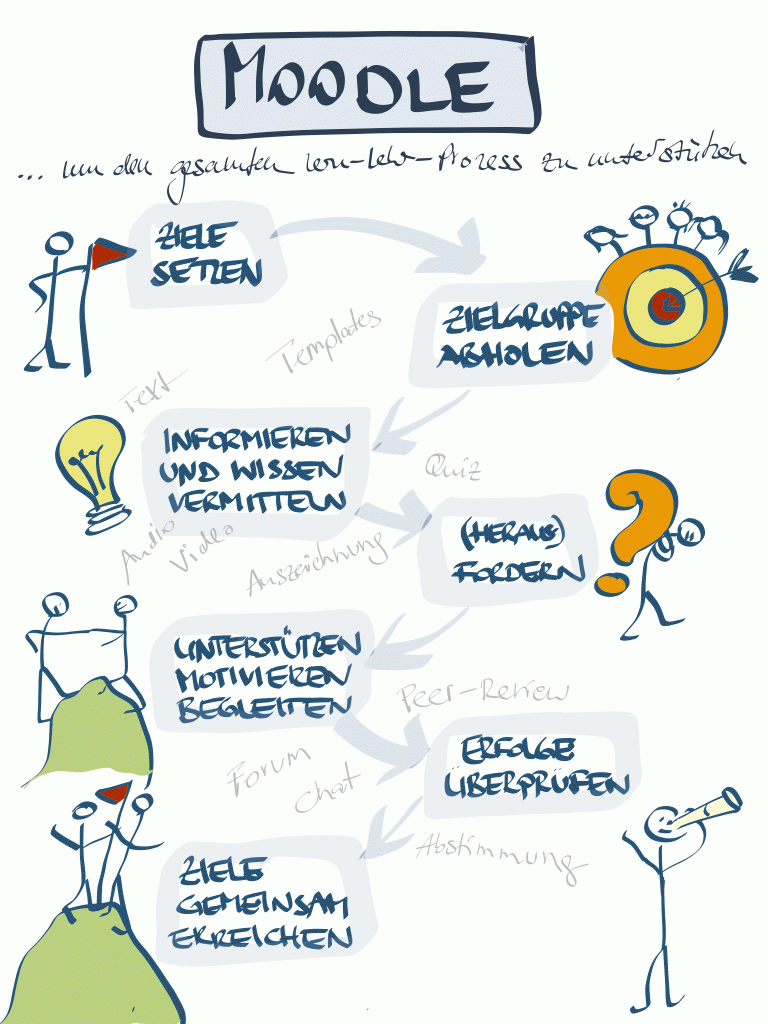 MOODLE
... um den gesamten Lern-Lehr-Prozess zu unterstützen
ZIELE
SETZEN
ZIELGRUPPE
ABHOLEN
Templates
Text
INFORMIEREN
UND WISSEN
VERMITTELN
Quiz
(HERAUS)
FORDERN
Audio
Video
Auszeichnung
UNTERSTÜTZEN
MOTIVIEREN
BEGLEITEN
Peer-Review
ERFOLGE
ÜBERPRÜFEN
Forum
Chat
Abstimmung
ZIELE
GEMEINSAM
ERREICHEN